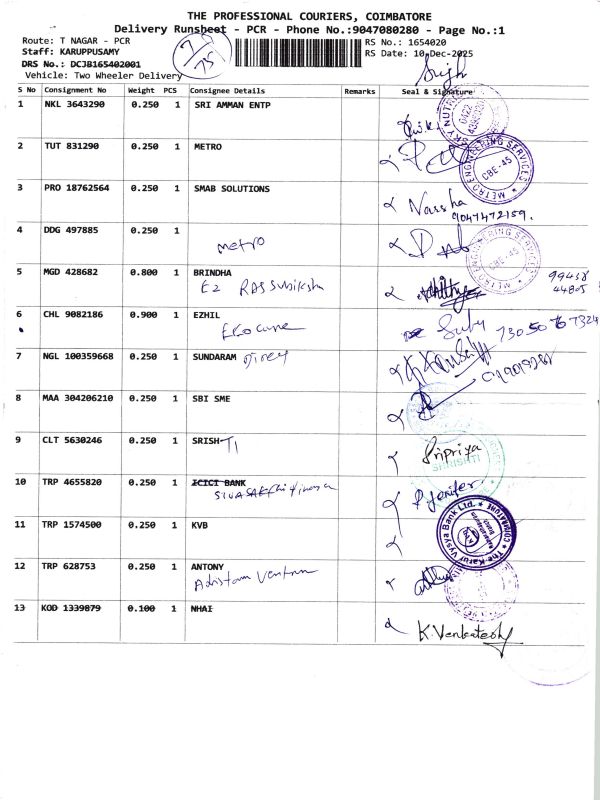 THE PROFESSIONAL COURIERS, COIMBATORE
Delivery Runsheet - PCR - Phone No.:9047080280 - Page No.:1
Route: T NAGAR - PCR
Staff: KARUPPUSAMY
DRS No.: DCJB165402001
Vehicle: Two Wheeler Delivery
RS No.: 1654020
RS Date: 10-Dec-2025
S No Consignment No Weight PCS Consignee Details Remarks Seal & Signature
1 NKL 3643290 0.250 1 SRI AMMAN ENTP
2 TUT 831290 0.250 1 METRO
METRO ENGINEERING SERVICES
CBE-45
3 PRO 18762564 0.250 1 SMAB SOLUTIONS
Nassha
9047472159.
4 DDG 497885 0.250 1
metro
CBE-45
5 MGD 428682 0.800 1 BRINDHA
99438
44805
6 CHL 9082186 0.900 1 EZHIL
7 NGL 100359668 0.250 1 SUNDARAM
8 MAA 304206210 0.250 1 SBI SME
9 CLT 5630246 0.250 1 SRISHTI
Sripriya
SHRISHTI
10 TRP 4655820 0.250 1 ICICI BANK
P Jenifer
11 TRP 1574500 0.250 1 KVB
The Karur Vysya Bank Ltd.
COIMBATORE
12 TRP 628753 0.250 1 ANTONY
13 KOD 1339879 0.100 1 NHAI
K. Venkatesh